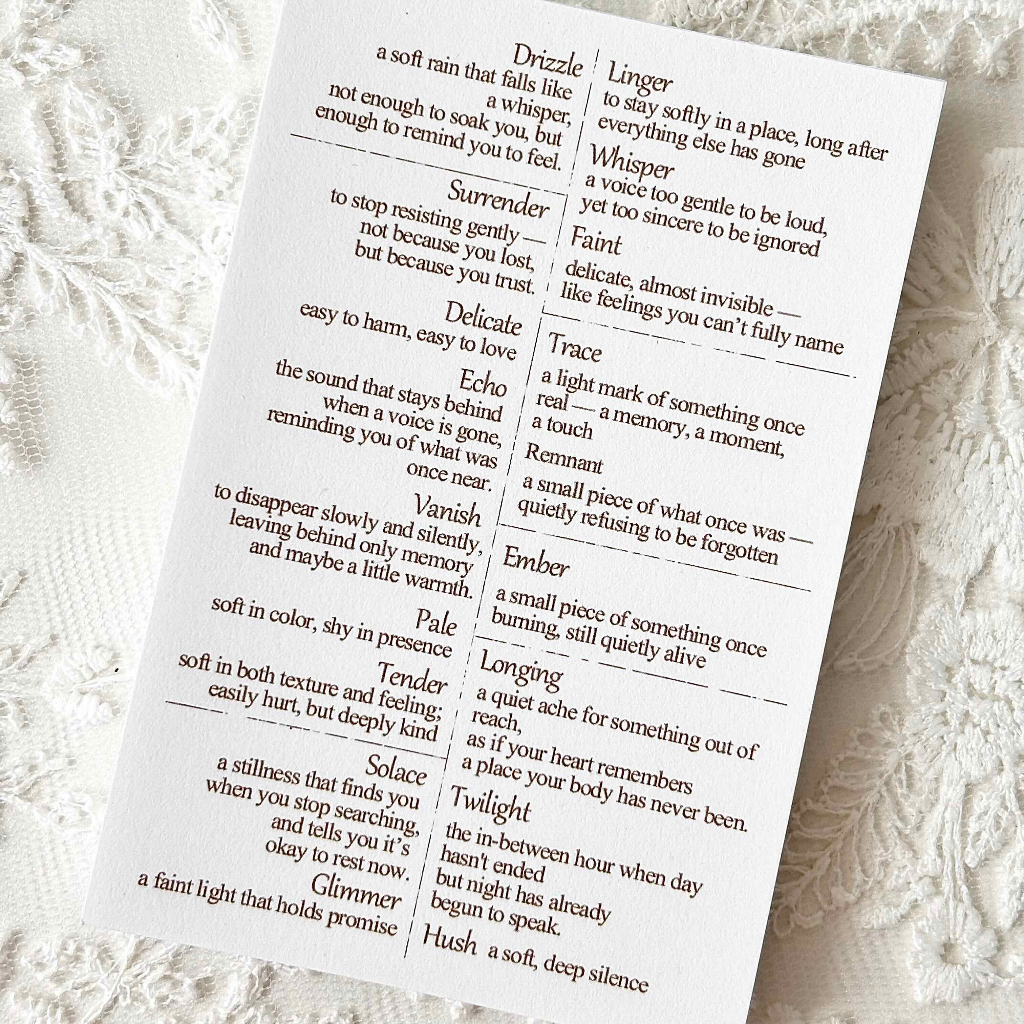 Drizzle
a soft rain that falls like
a whisper,
not enough to soak you, but
enough to remind you to feel.
Surrender
to stop resisting gently —
not because you lost,
but because you trust.
Delicate
easy to harm, easy to love
Echo
the sound that stays behind
when a voice is gone,
reminding you of what was
once near.
Vanish
to disappear slowly and silently,
leaving behind only memory
and maybe a little warmth.
Pale
soft in color, shy in presence
Tender
soft in both texture and feeling;
easily hurt, but deeply kind
Solace
a stillness that finds you
when you stop searching,
and tells you it's
okay to rest now.
Glimmer
a faint light that holds promise
Linger
to stay softly in a place, long after
everything else has gone
Whisper
a voice too gentle to be loud,
yet too sincere to be ignored
Faint
delicate, almost invisible —
like feelings you can't fully name
Trace
a light mark of something once
real — a memory, a moment,
a touch
Remnant
a small piece of what once was —
quietly refusing to be forgotten
Ember
a small piece of something once
burning, still quietly alive
Longing
a quiet ache for something out of
reach,
as if your heart remembers
a place your body has never been.
Twilight
the in-between hour when day
hasn't ended
but night has already
begun to speak.
Hush a soft, deep silence